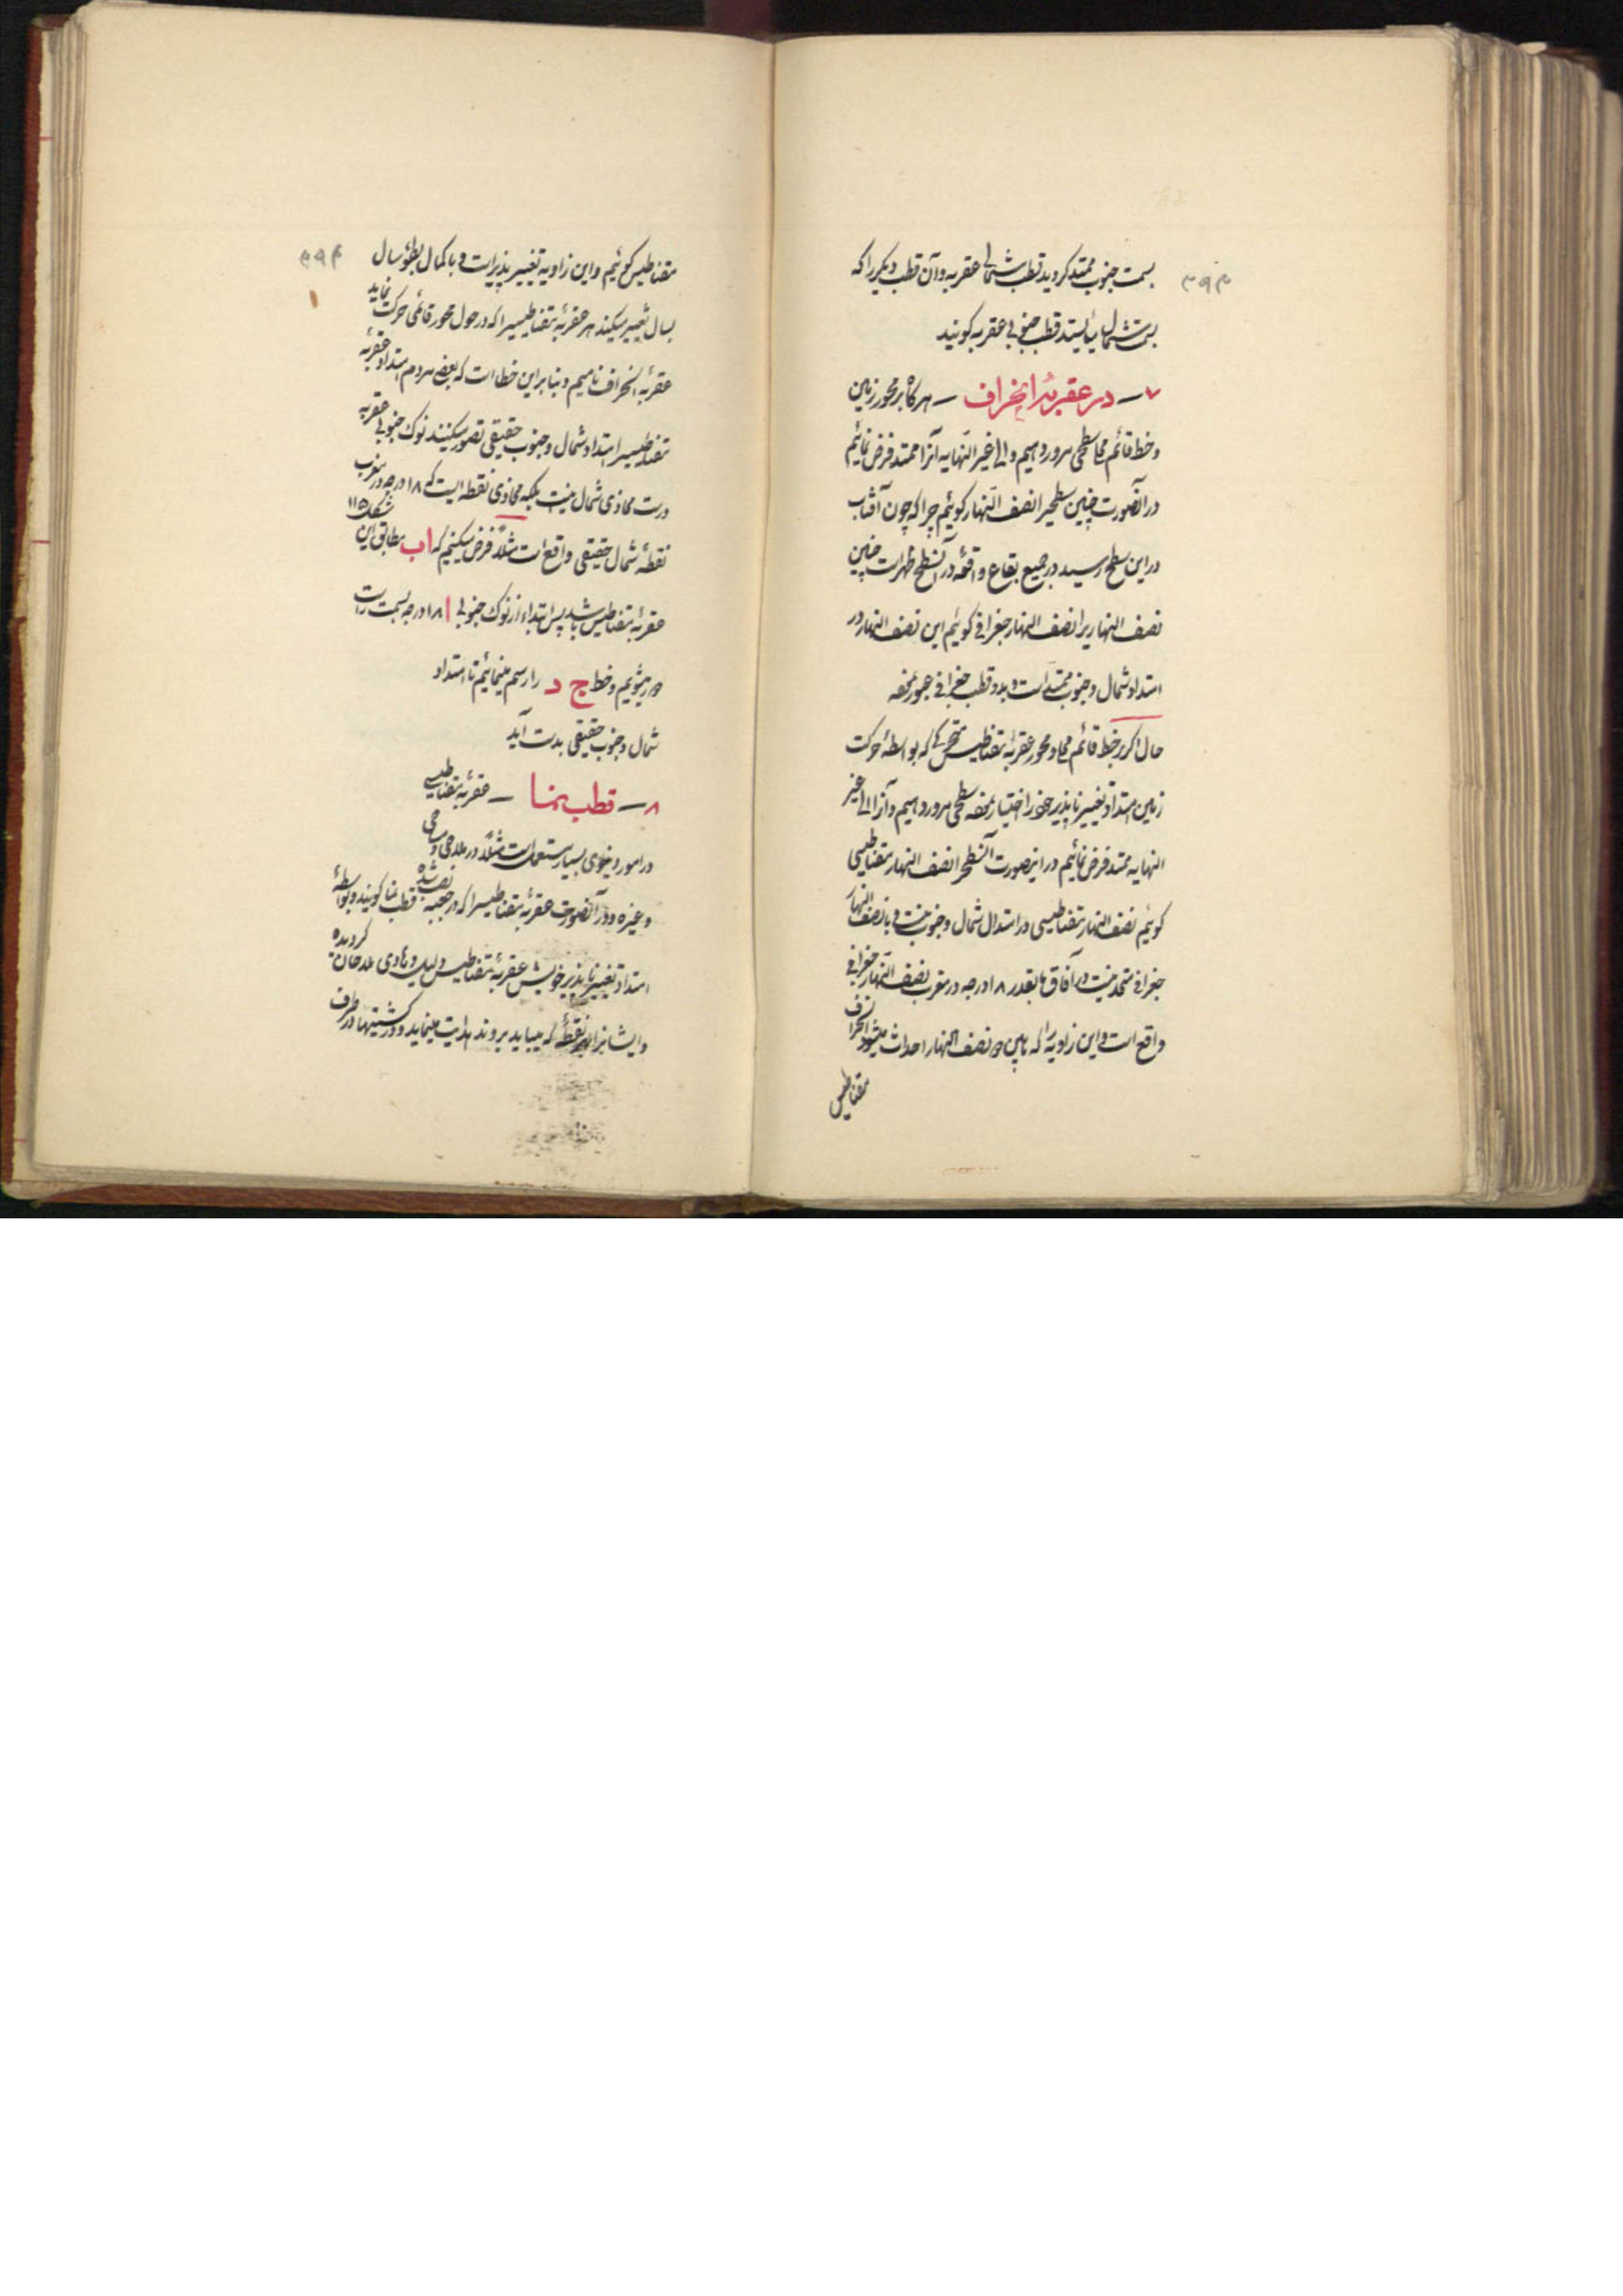 ۳۹۳
بسمت جنوب ممتد کردید قطب شمالی عقربه و آن قطب دیکر را که
بسمت شمال بایستد قطب جنوبی عقربه کویند
۷ – در عقربهٔ انحراف – هرکاه بر محور زمین
و خط قائم محل سطحی مرور دهیم و الی غیر النهایه آنرا ممتد فرض نمائیم
در آنصورت چنین سطحیرا نصف النهار کوئیم چرا که چون آفتاب
در این سطح رسید در جمیع بقاع واقعه در آنسطح ظهر است چنین
نصف النهاریرا نصف النهار جغرافی کوئیم این نصف النهار در
امتداد شمال و جنوب ممتد است و بدو قطب جغرافی عبور نموده
حال اکر بر خط قائم محل و محور عقربهٔ مقناطیس متحرکی که بواسطهٔ حرکت
زمین امتداد تغییر ناپذیر خود را اختیار نموده سطحی مرور دهیم و آنرا الی غیر
النهایه ممتد فرض نمائیم در اینصورت آنسطحرا نصف النهار مقناطیسی
کوئیم نصف النهار مقناطیسی در امتداد شمال و جنوب نیست و با نصف النهار
جغرافی متحد نیست در آفاق ما بقدر ۱۸ درجه در مغرب نصف النهار جغرافی
واقع است و این زاویه‌را که مابین دو نصف النهار احداث میشود انحراف
مقناطیس
۳۹۴
مقناطیس کوئیم و این زاویه تغییر پذیر است و با کمال بطؤ سال
بسال تغییر میکند هر عقربهٔ مقناطیسیرا که در حول محور قائمی حرکت نماید
عقربهٔ انحراف نامیم و بنابر این خطا است که بعضی مردم امتداد عقربهٔ
مقناطیسیرا امتداد شمال و جنوب حقیقی تصور میکنند نوک جنوبی عقربه
درست محاذی شمال نیست بلکه محاذی نقطه ایست که ۱۸ درجه در مغرب
نقطهٔ شمال حقیقی واقع است مثلاً فرض میکنیم که اب مطابق این شکل ۱۱۵
عقربهٔ مقناطیس باشد پس ابتداء از نوک جنوبی ا ۱۸ درجه بسمت راست
دور میشویم و خط ج د را رسم مینمائیم تا امتداد
شمال و جنوب حقیقی بدست آید
۸ – قطب نما – عقربهٔ مقناطیسی
در امور دنیوی بسیار مستعمل است مثلاً در ملاحی و مساحی
و غیره و در آنصورت عقربهٔ مقناطیسیرا که در جعبه نصب شده قطب نما کویند و بواسطهٔ
امتداد تغییر ناپذیر خویش عقربهٔ مقناطیس دلیل و هادی ملاحان کردیده
و ایشانرا بهر نقطهٔ که میباید بروند هدایت مینماید و در کشتیها در ظرف